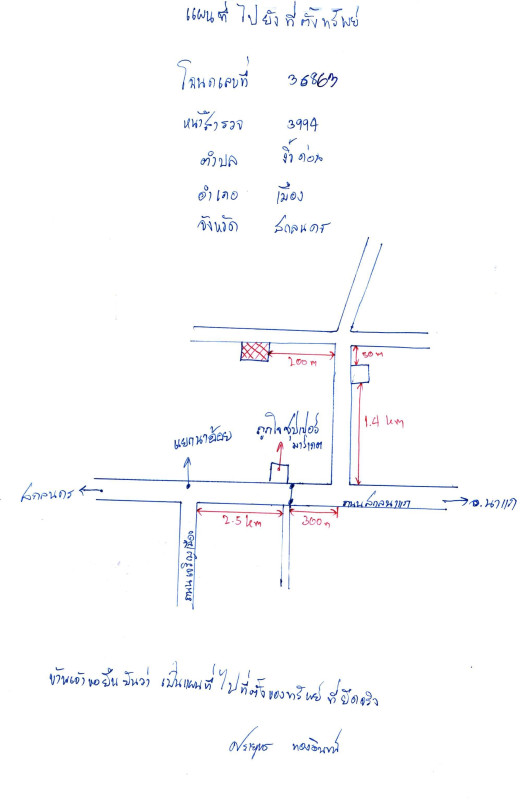 แผนที่ ไปยังที่ตั้งทรัพย์
โฉนดเลขที่ 36867
หน้าสำรวจ 3994
ตำบล งิ้วด่อน
อำเภอ เมือง
จังหวัด สกลนคร
200 m
80 m
1.4 km
แยกนาอ้อย
ถูกใจซุปเปอร์
มาร์เกต
สกลนคร
ถนนสกลนาแก
อ.นาแก
2.5 km
300 m
ข้าพเจ้าขอยืนยันว่า เป็นแผนที่ไปที่ตั้งของทรัพย์ที่ยึดจริง